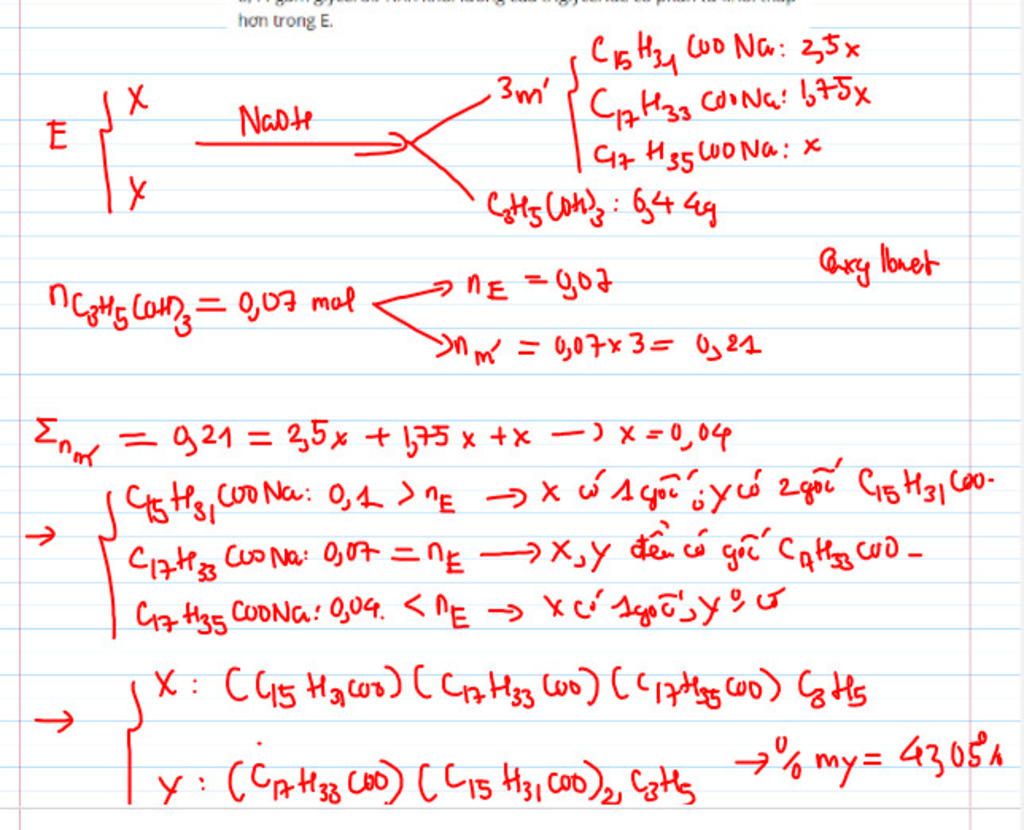 hơn trong E.
E { X
X
NaOH
3 m' { C15H31COONa: 2,5x
C17H33COONa: 1,75x
C17H35COONa: x
C3H5(OH)3: 6,44g
Oxy
nC3H5(OH)3 = 0,07 mol → nE = 0,07
→ nm' = 0,07x3 = 0,21
Σnm' = 0,21 = 2,5x + 1,75x + x → x = 0,04
→ { C15H31COONa: 0,1 > nE → X có 1 gốc; Y có 2 gốc C15H31COO-
C17H33COONa: 0,07 = nE → X, Y đều có gốc C17H33COO-
C17H35COONa: 0,04. < nE → X có 1 gốc, Y 0 có
→ { X: (C15H31COO)(C17H33COO)(C17H35COO)C3H5
Y: (C17H33COO)(C15H31COO)2C3H5 → % mY = 43,05%